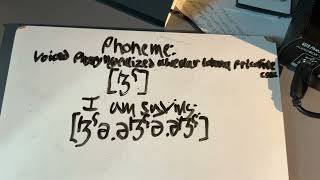 Phoneme
Voiced Pharyngealized alveolar lateral fricative
[ɮˤ]
I am saying:
[ɮˤə.əɮˤə.əɮˤ]